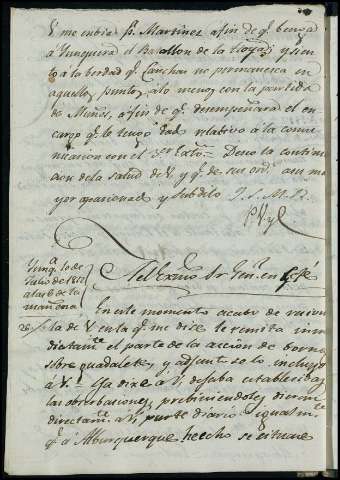 me embie Sr. Martinez a fin de q.e benga
a Junquera el Batallon de la
to á la berdad q.e Canchar no permanezca en
aquellos puntos, a lo menos con la partida
de Muñoz, á fin de q.e desempeñara el en
cargo q.e le tengo dado relativo á la comu
nicacion con el 3er Exto. Deseo la continu
acn. de la salud de V. y q.e de sus ord.s a su ma
yor apasionado y Subdito J. S. M. B.
Junq.a 10 de
Julio de 1812
a las 6 de la
mañana
Al Exmo. Sr. Gen.l en Gefe
En este momento acabo de recivir
la de V. en la q.e me dice le remita inme
diatam.te el parte de la accion de bornos
sobre guadalete, y adjunto se lo incluyo
á V. Ya dixe á V. dejaba establecidas
las obserbaciones, prebiniendoles dieran
directam.te á V. parte diario igualm.te
q.e á Alburquerque hecho se situase